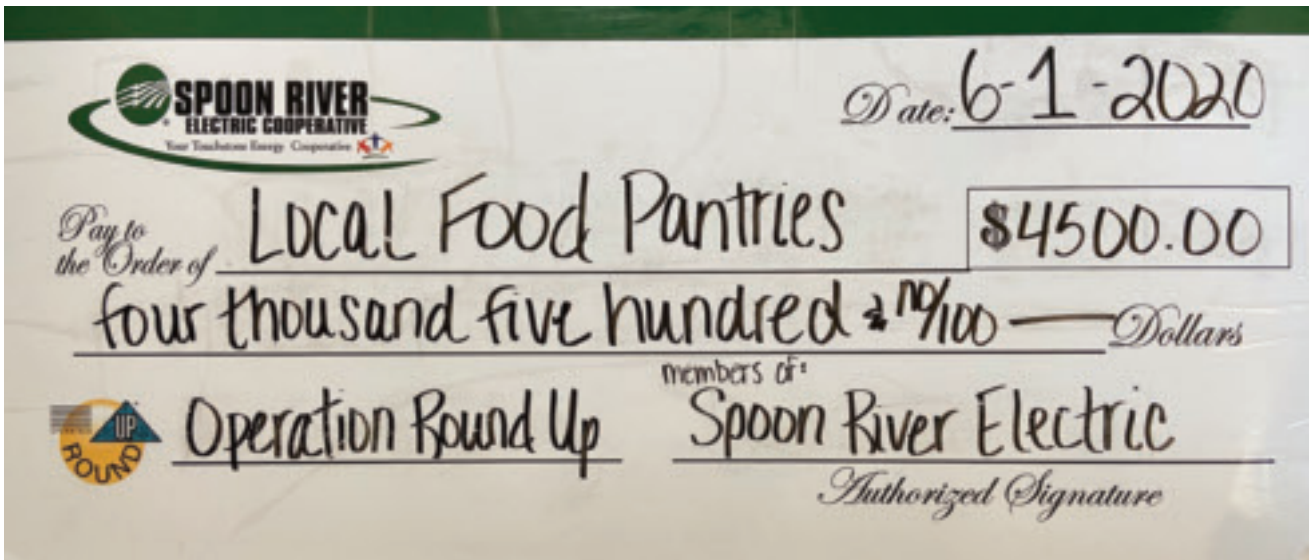 SPOON RIVER
ELECTRIC COOPERATIVE
Your Touchstone Energy Cooperative
Date: 6-1-2020
Pay to
the Order of Local Food Pantries $4500.00
four thousand five hundred & no/100 — Dollars
members of:
UP
ROUND
Operation Round Up Spoon River Electric
Authorized Signature